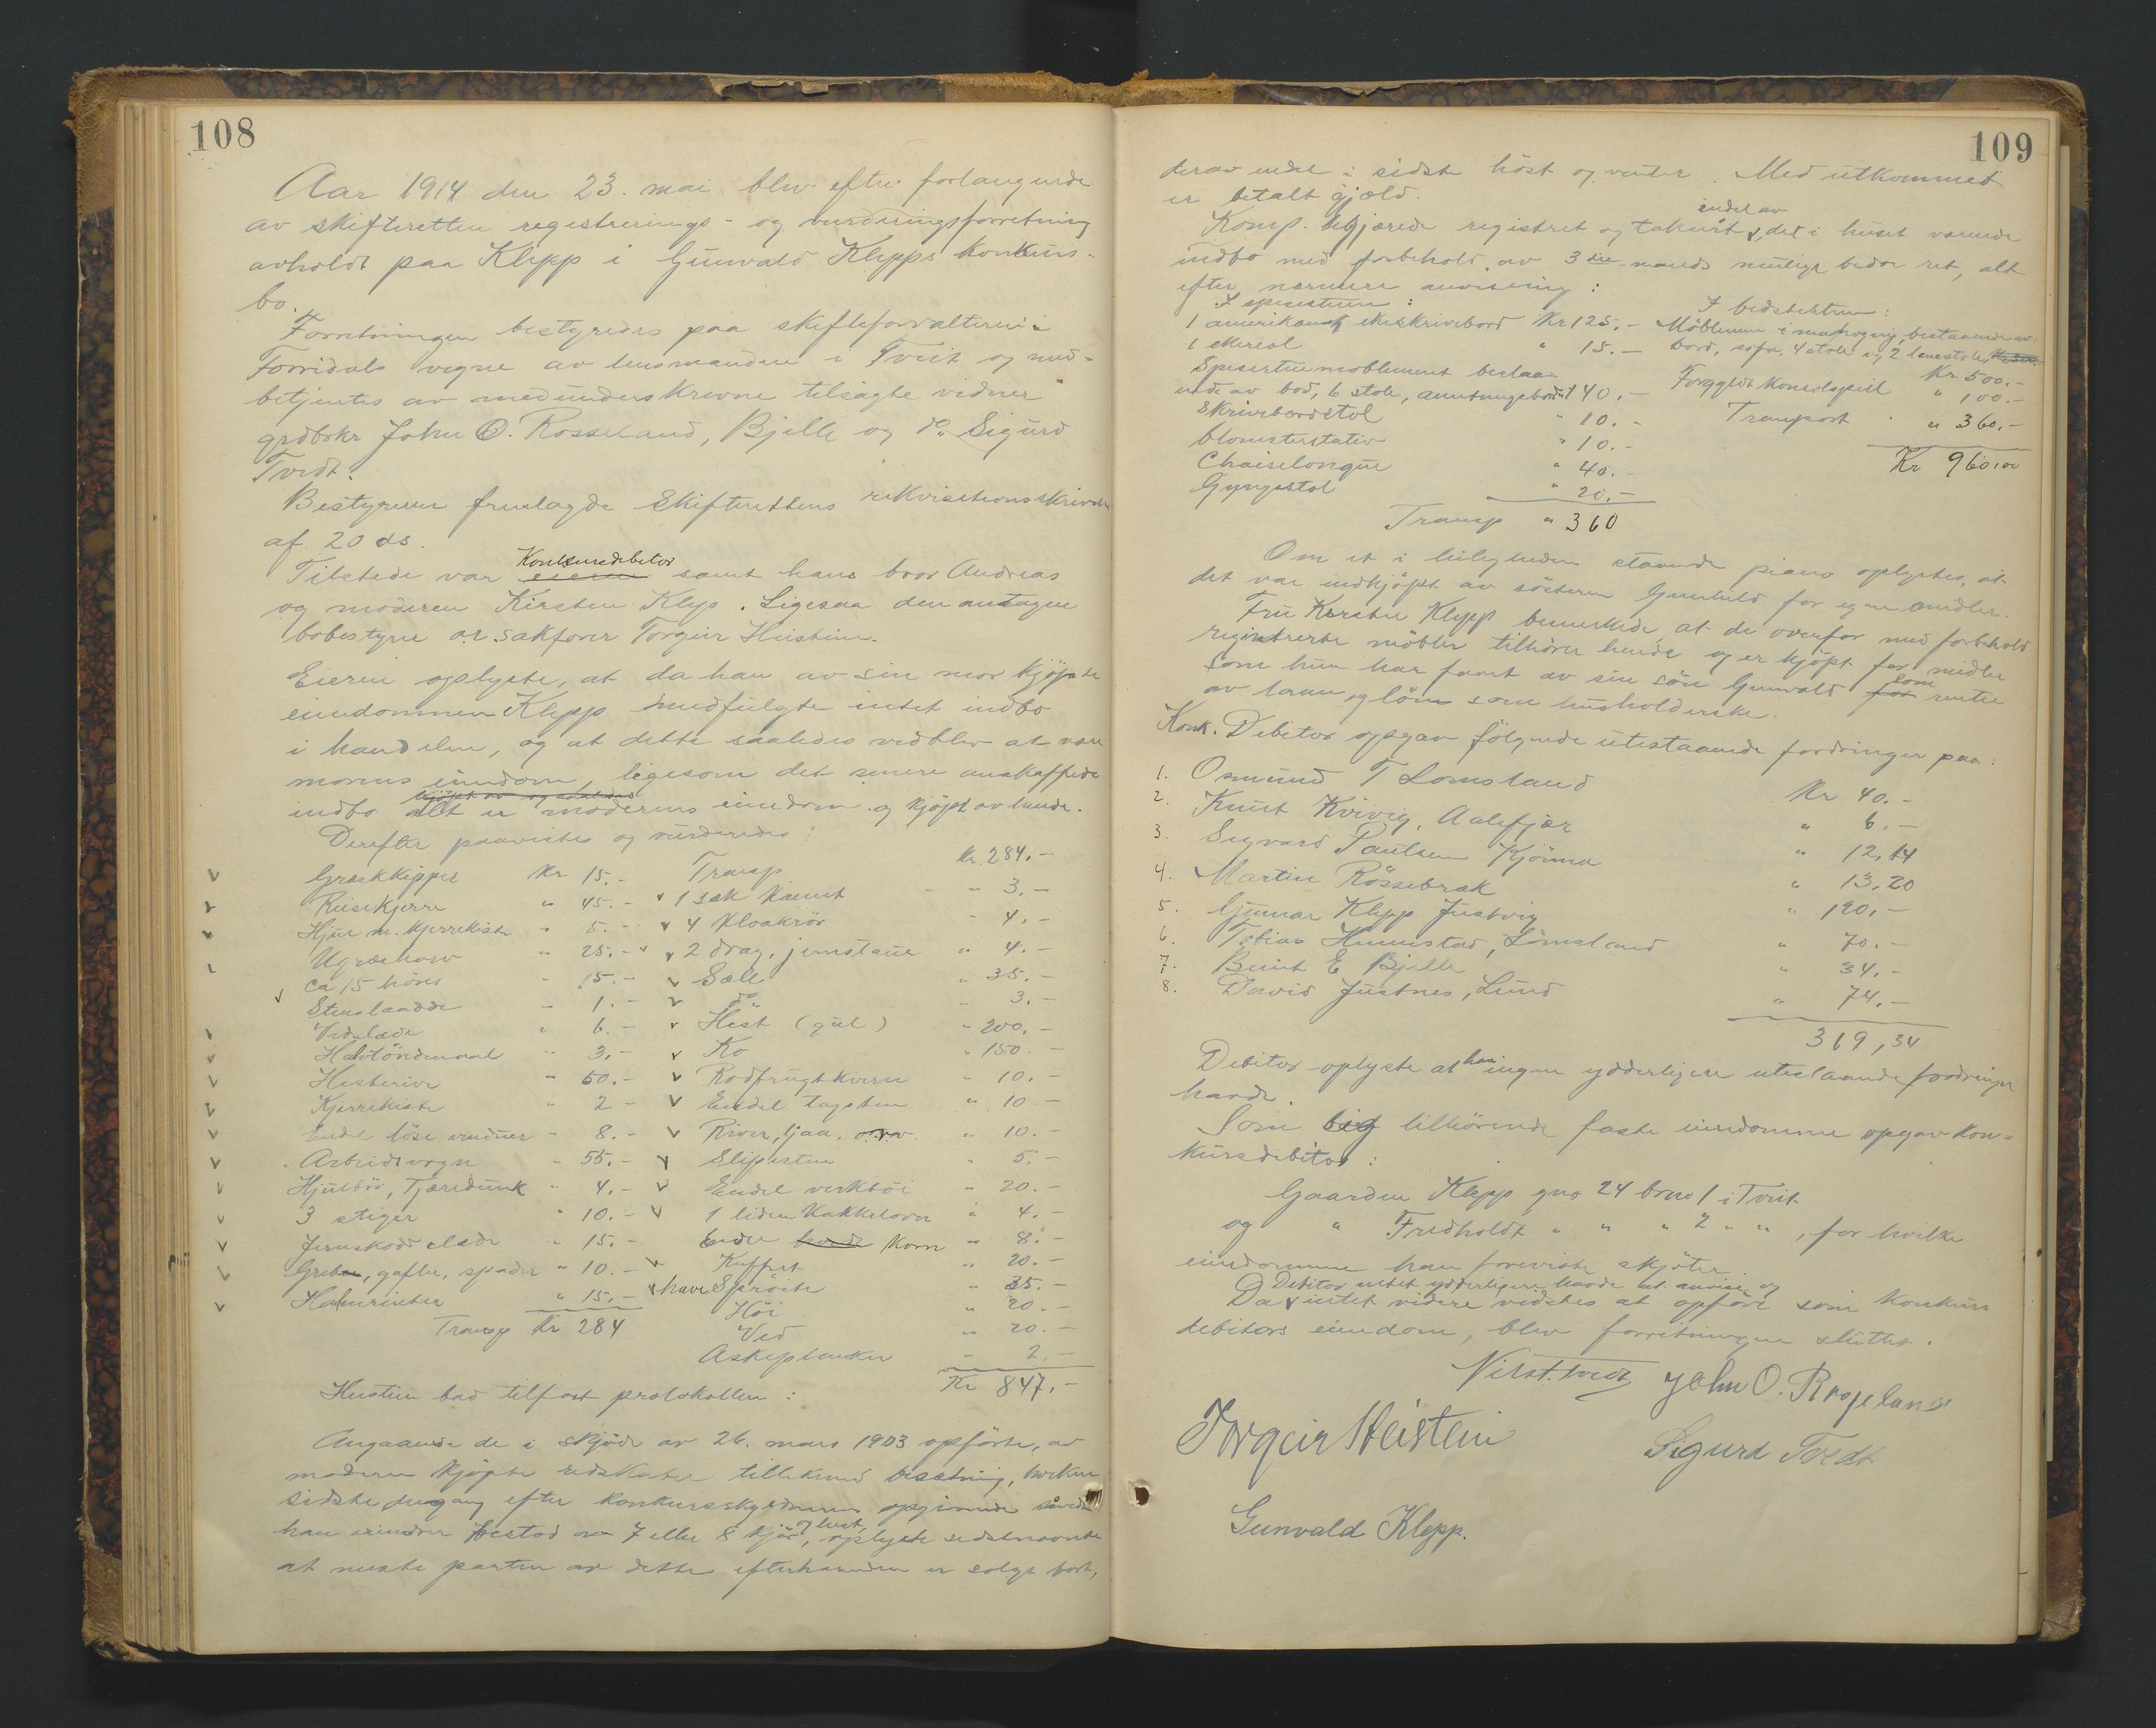 108
Aar 1914 den 23. mai blev efter forlangende
av skifteretten registrerings- og vurderingsforretning
avholdt paa Klepp i Gunvald Klepps konkurs-
bo.
Forretningen bestyredes paa skifteforvalteren i
Torridals vegne av lensmanden i Tveit og med-
betjentes av medunderskrevne tilsagte vidner
grdbrkr John O. Rosseland, Bjelle og do Sigurd
Tvedt.
Bestyreren fremlagde skifterettens rekvisitionsskrivelse
af 20 ds.
Konkursdebitor
Tilstede var eieren samt hans bror Andreas
og moderen Kirsten Klep. Ligesaa den antagne
bobestyrer o.r. sakfører Torgeir Heistein.
Eieren oplyste, at da han av sin mor kjöpte
eiendommen Klepp medfulgte intet indbo
i handelen, og at dette saaledes vedblev at være
morens eiendom, ligesom det senere anskaffede
kjöpt av og saaledes
indbo alt er moderens eiendom og kjöpt av hende.
Derefter paavistes og vurderedes:
Græskkipper Kr 15.-
Reisekjerre " 45.-
Hjul m. kjerrekiste " 5.-
Ugræsharv " 25.-
Ca 15 höns " 15.-
Stenslaadde " 1.-
Vedslæde " 6.-
Halvtöndemaal " 3.-
Hesterive " 50.-
Kjerrekiste " 2.-
Endel löse vinduer " 8.-
Arbeidsvogn " 55.-
Hjulbör, Tjæredunk " 4.-
3 stiger " 10.-
Jernskodd slæde " 15.-
Greben, gafler, spader " 10.-
" 15.-
Transp Kr 284
Transp Kr. 284.-
1 sæk kainit " 3.-
4 Kloakrör " 4.-
2 drag, jernstaur " 4.-
Sæle " 35.-
do " 3.-
Hest (gul) " 200.-
Ko " 150.-
Rodfrugtkvern " 10.-
Endel tagsten " 10.-
River, ljaa, " 10.-
Slipesten " 5.-
Endel verktöi " 20.-
1 liden Kakkelovn " 4.-
Endel korn " 8.-
Kuffert " 20.-
have Spröite " 35.-
Höi " 20.-
Ved " 20.-
Askeplanker " 2.-
Kr 847.-
Heistein bad tilført protokollen:
Angaaende de i skjöde av 26. mars 1903 opförte, av
moderen kjöpte redskaber tillikemed besætning, hvilken
sidste dengang efter konkursskyldnerens opgivende saavidt
og hest,
han erindrer bestod av 7 eller 8 kjör, oplyste sidstnævnte
at meste parten av dette efterhaanden er solgt bort,
109
derav endel i sidste höst og vinter. Med utkommet
er betalt gjæld.
endel av
Komp. begjærede registret og takseret det i huset værende
indbo med forbehold av 3die-mands mulige bedre ret, alt
efter nærmere anvisning:
I spisestuen:
1 amerikansk ekeskrivebord Kr 125.-
1 " 15.-
Spisestuemöblement bestaa-
ende av bord, 6 stole, anretningsbord " 140.-
Skrivebordstol " 10.-
Blomsterstativ " 10.-
Chaiselongue " 40.-
Gyngestol " 20.-
Transp " 360
I bedstestuen:
Möblement i mahogny, bestaaende av:
bord, sofa, 4 stole og 2 lænestoler
Kr 500.-
Forgyldt Konsolspeil " 100.-
Transport " 360.-
Kr 960,00
Om et i leiligheden staaende piano oplystes, at
det var indkjöpt av söstern Gunhild for egne midler.
Fru Kirsten Klepp bemerkede, at de ovenfor med forbehold
registrerte möbler tilhörer hende og er kjöpt for midler
som
som hun har faaet av sin sön Gunvald for renter
av laan og lön som husholderske.
Konk. Debitor opgav fölgende utestaaende fordringer paa:
1. Osmund T Lomsland Kr 40.-
2. Knut Kvivig, Aalefjær " 6.-
3. Sigvard Paulsen Kjönna " 12,14
4. Martin Rössebrak " 13,20
5. Gunnar Klepp Justvig " 120.-
6. Tobias , Lömsland " 70.-
7. Berint E Bjelle " 34.-
8. David Justnes, Lund " 74.-
319,34
Debitor oplyste at han ingen ydderligere utestaaende fordringer
havde.
Som sig tilhörende faste eiendomme opgav kon-
kursdebitor:
Gaarden Klepp gno 24 brno 1 i Tveit
og " Fredholdt " " " 2 " ", for hvilke
eiendomme han foreviste skjöter.
Debitor intet ydderligere havde at anvise og
Da intet videre vidstes at opföre som konkurs
debitors eiendom, blev forretningen sluttet.
John O. Rosseland
Torgeir Heistein
Sigurd Tvedt
Gunvald Klepp.